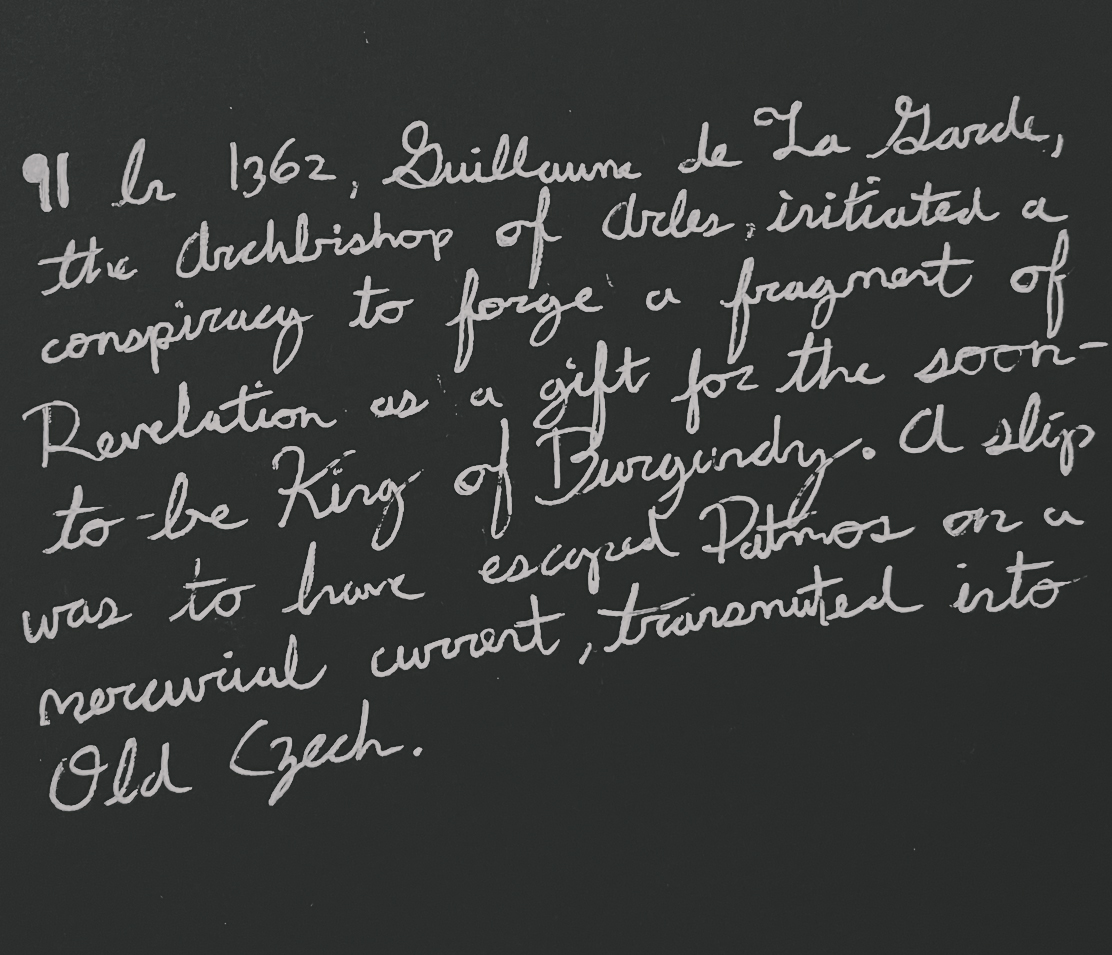 ¶ In 1362, Guillaume de La Garde,
the Archbishop of Arles, initiated a
conspiracy to forge a fragment of
Revelation as a gift for the soon-
to-be King of Burgundy. A slip
was to have escaped Patmos on a
mercurial current, transmuted into
Old Czech.